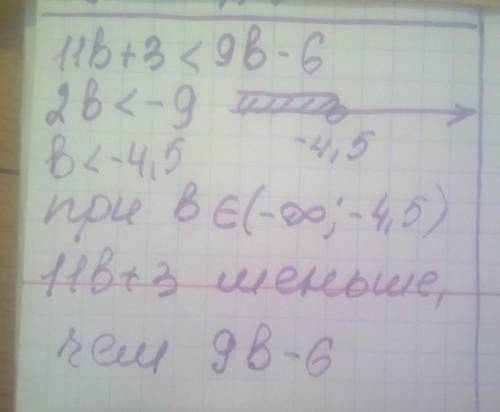 11в+3 < 9в-6
2в < -9
-4,5
в < -4,5
при в ∈ (-∞; -4,5)
11в+3 меньше,
чем 9в-6